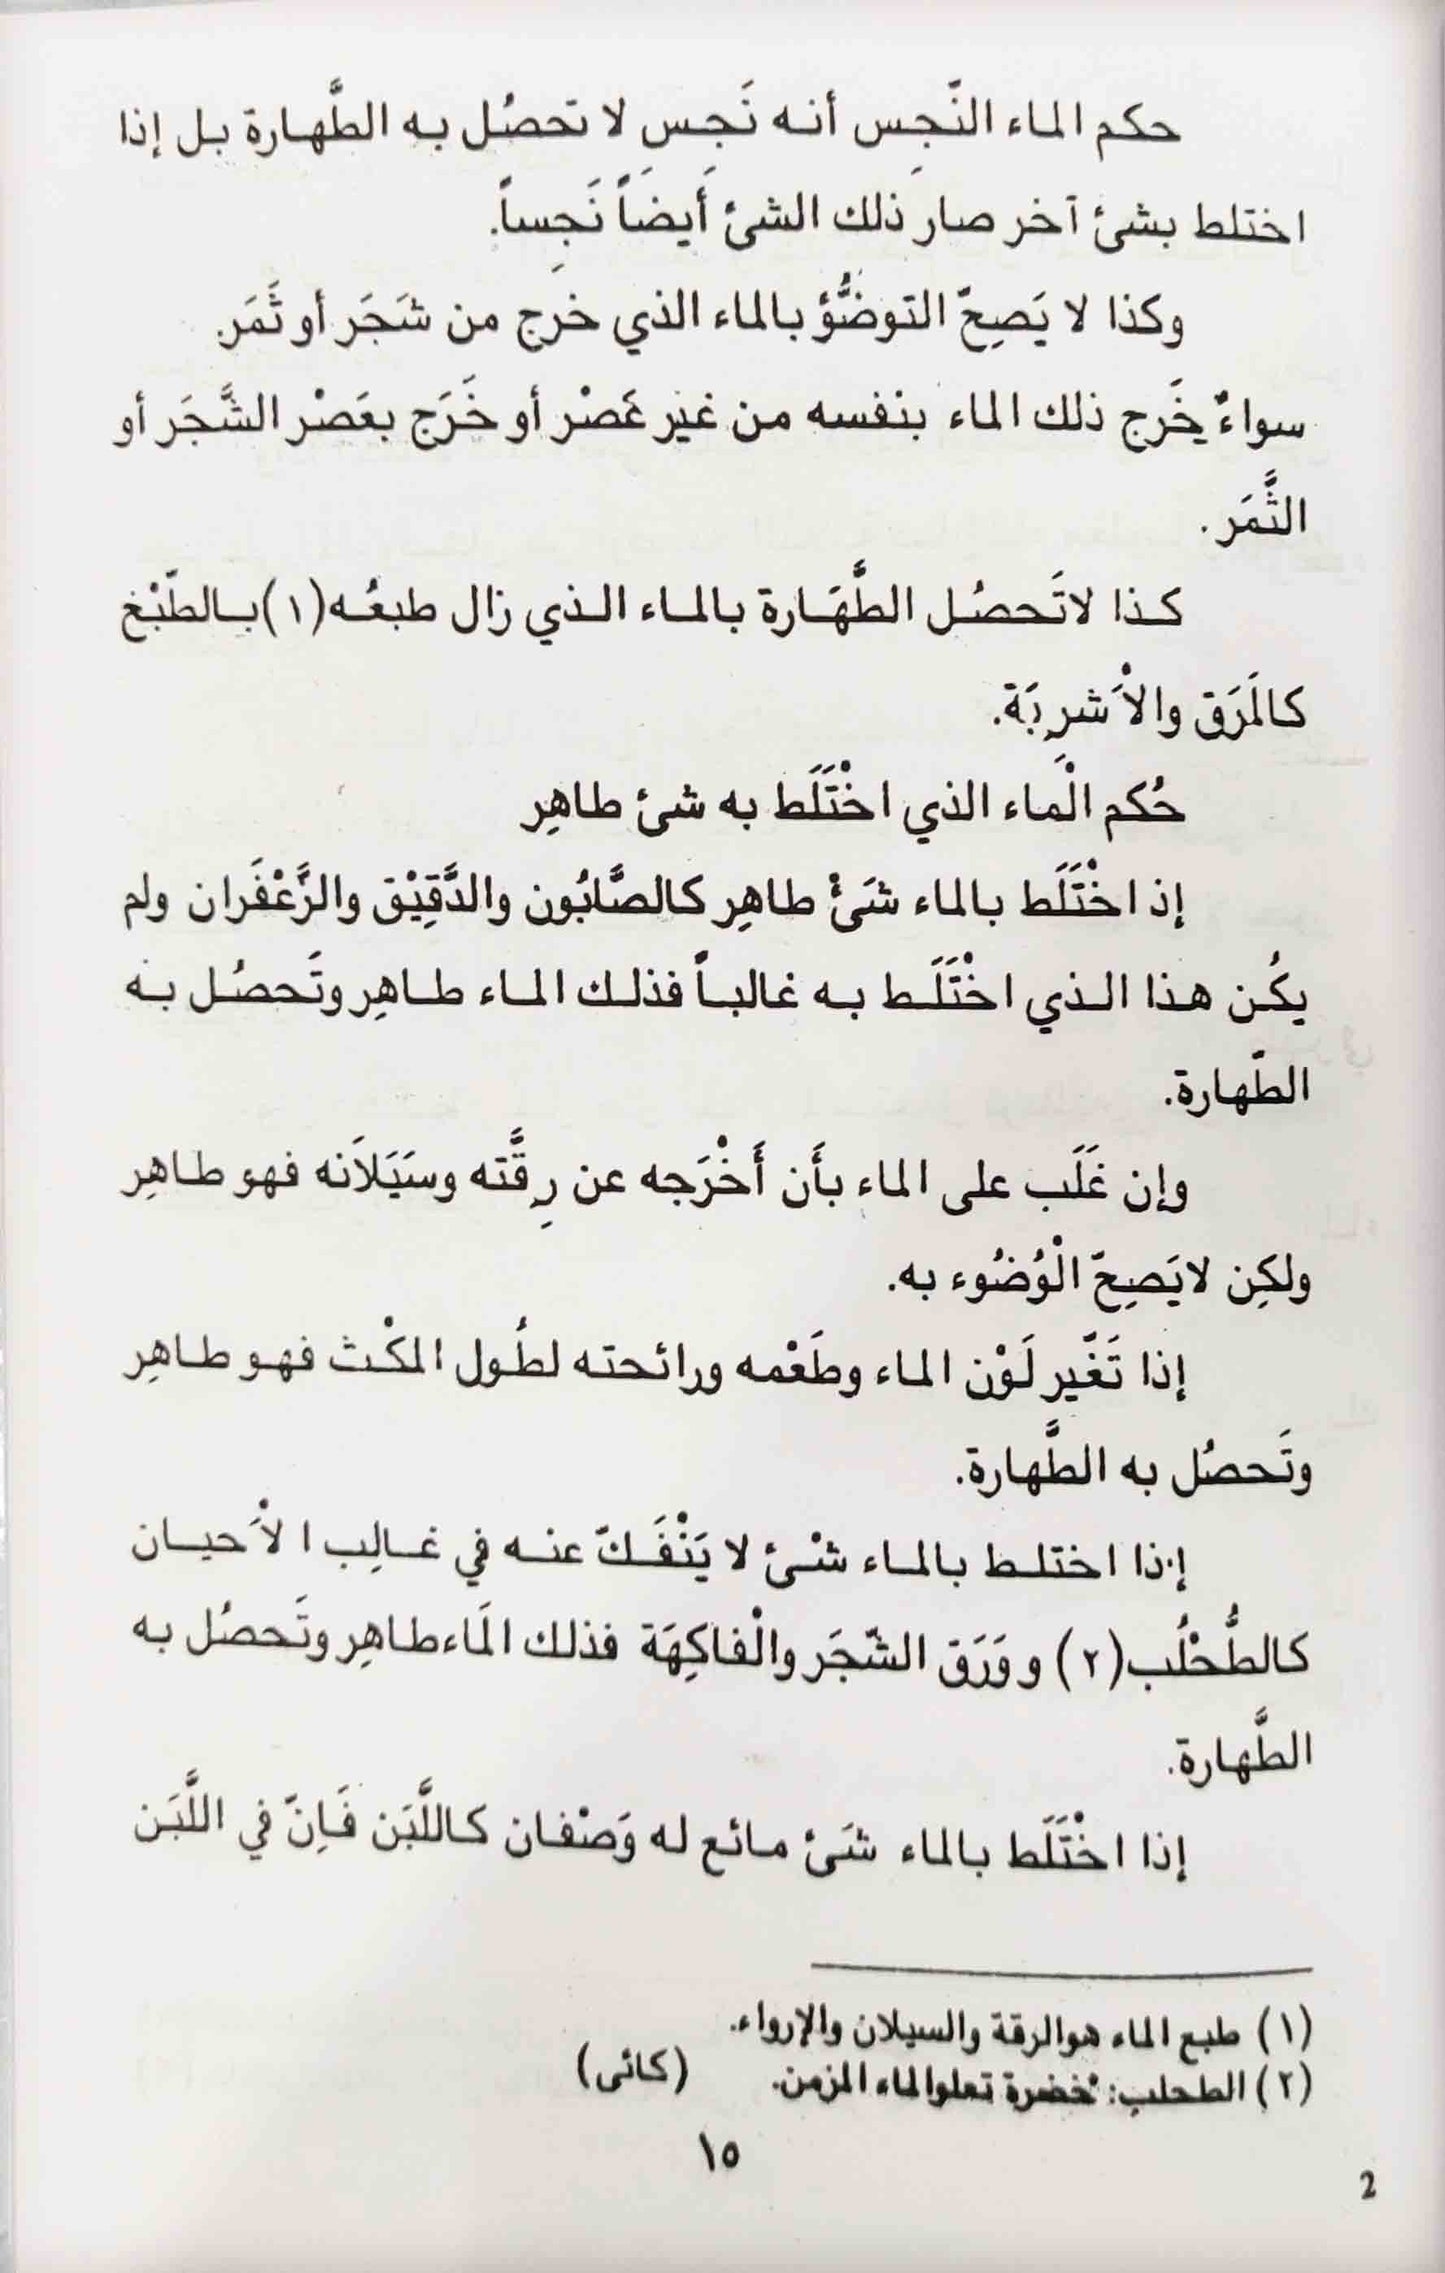 حكم الماء النّجِس أنه نَجِس لا تحصُل به الطَّهارة بل إذا
اختلط بشئ آخر صار ذلك الشئ أيضاً نَجِساً.
وكذا لا يَصِحّ التوضُّؤ بالماء الذي خرج من شَجَر أو ثَمَر.
سواءٌ خَرج ذلك الماء بنفسه من غير عَصْر أو خَرَج بعَصْر الشَّجَر أو
الثَّمَر.
كذا لاتَحصُل الطَّهَارة بالماء الذي زال طبعُه(١)بالطّبْخ
كالمَرَق والْأَشرِبَة.
حُكم الْمِاء الذي اخْتَلَط به شئ طاهِر
إذ اخْتَلَط بالماء شَئْ طاهِر كالصَّابُون والدَّقِيْق والزَّعْفَران ولم
يكُن هذا الذي اخْتَلَط به غالباً فذلك الماء طاهِر وتَحصُل به
الطّهارة.
وإن غَلَب على الماء بأَن أَخْرَجه عن رِقَّته وسَيَلَانه فهو طاهِر
ولكِن لايَصِحّ الْوُضُوء به.
إذا تَغّير لَوْن الماء وطَعْمه ورائحته لطُول المكْث فهو طاهِر
وتَحصُل به الطَّهارة.
إذا اختلط بالماء شئ لا يَنْفَكّ عنه في غالِب الْأَحيان
كالطُّحْلُب(٢) ووَرَق الشّجَر والْفاكِهَة فذلك المَاء طاهِر وتَحصُل به
الطَّهارة.
إذا اخْتَلَط بالماء شَئ مائع له وَصْفان كاللَّبَن فَاِنّ في اللَّبَن
(١) طبع الماء هوالرقة والسيلان والإرواء.
(٢) الطحلب: خضرة تعلوالماء المزمن. (كائى)
١٥
2